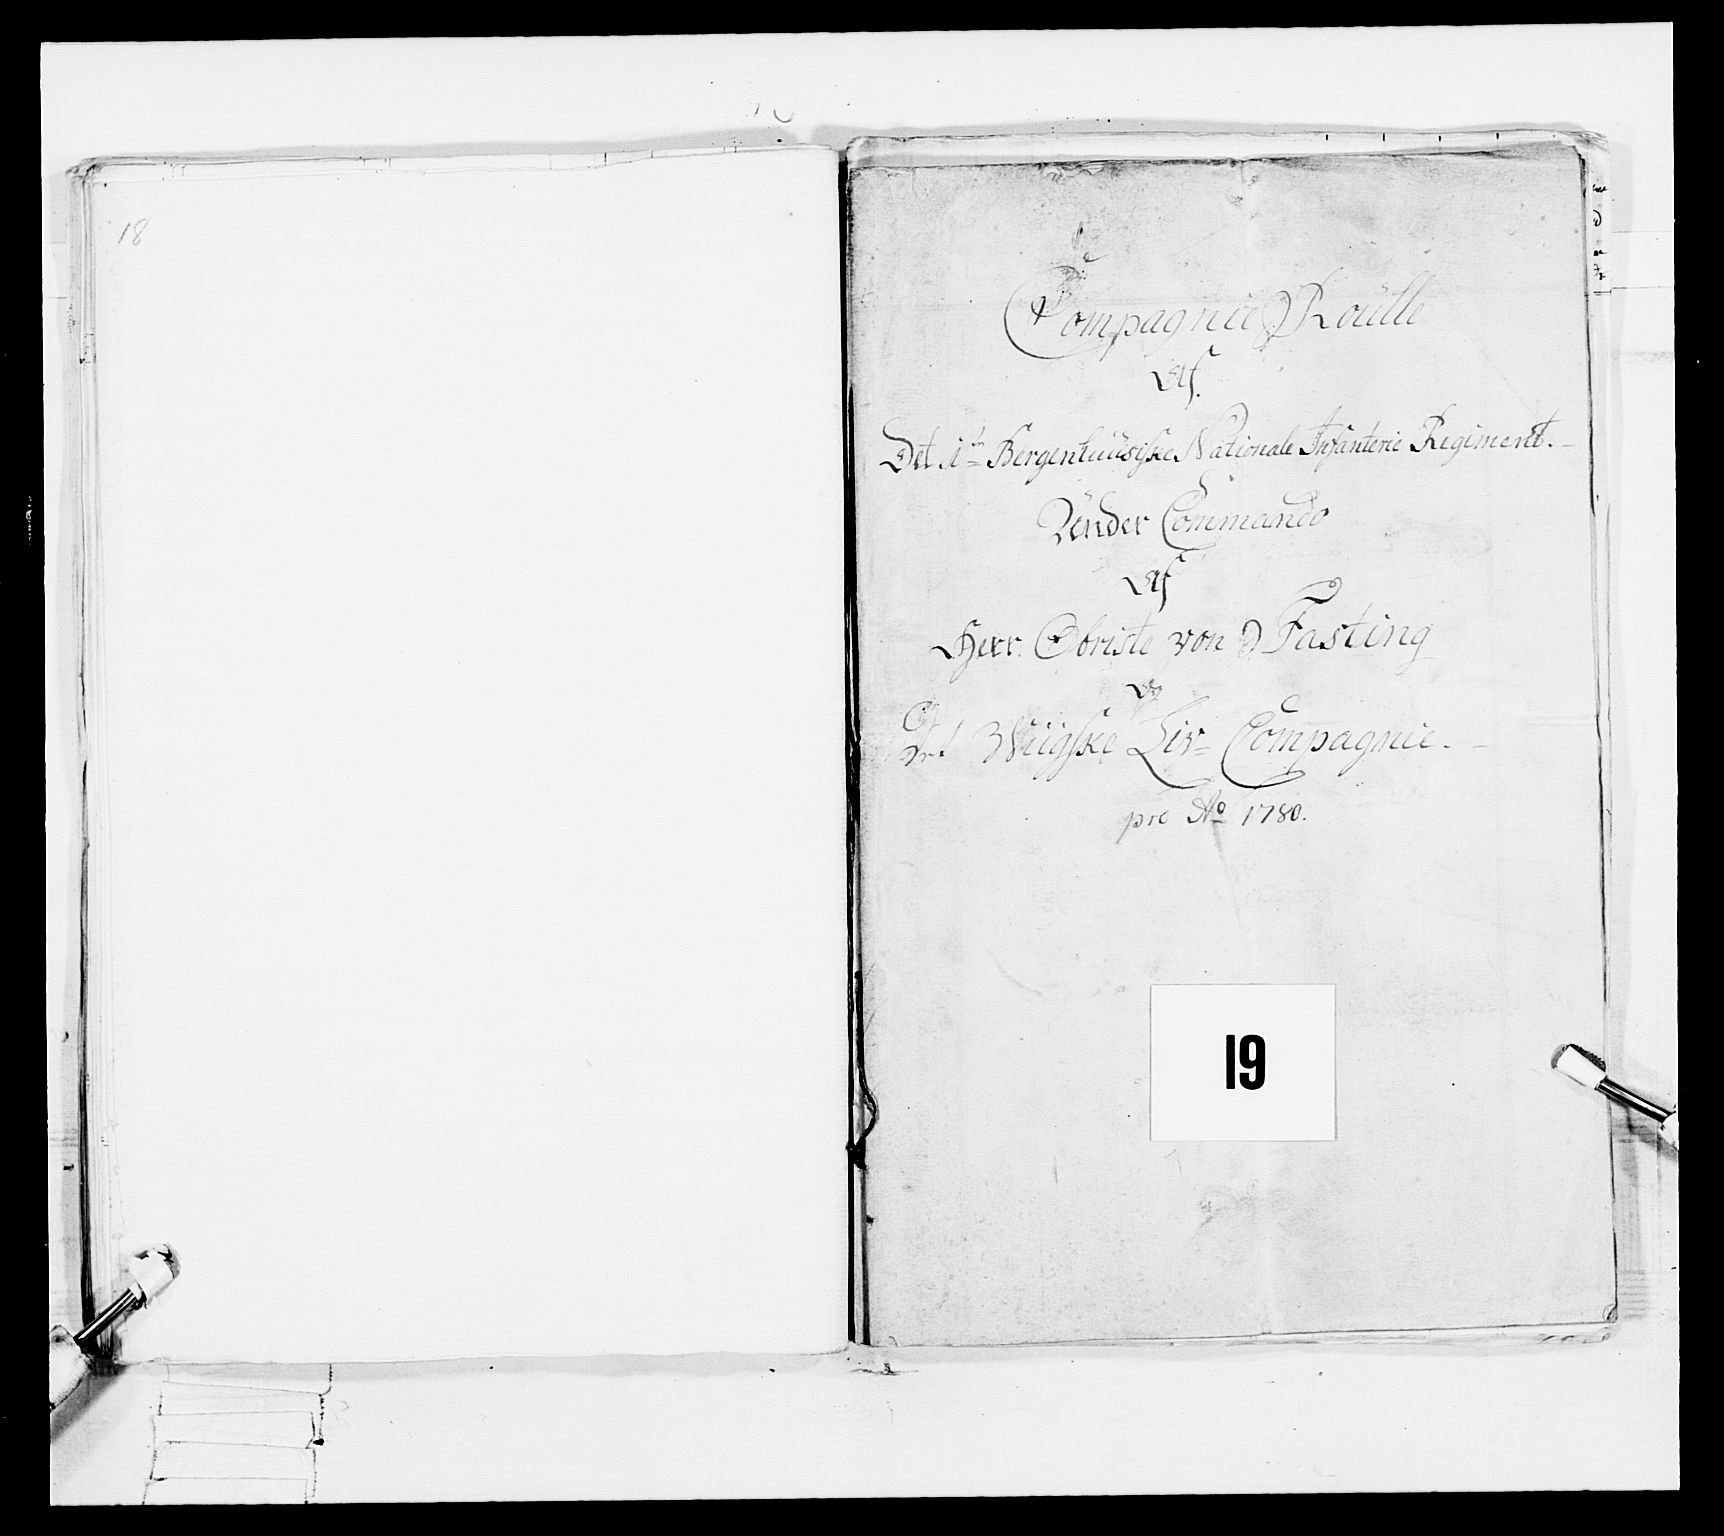 18
Compagnie Roülle
Af.
Det 1ste Bergenhuüsiske Nationale Infanterie Regiment.
Ünder Commando
Af
Herr Obriste von Fasting
og
Det Wiigske Liv Compagnie.
pro Ao 1780.
19